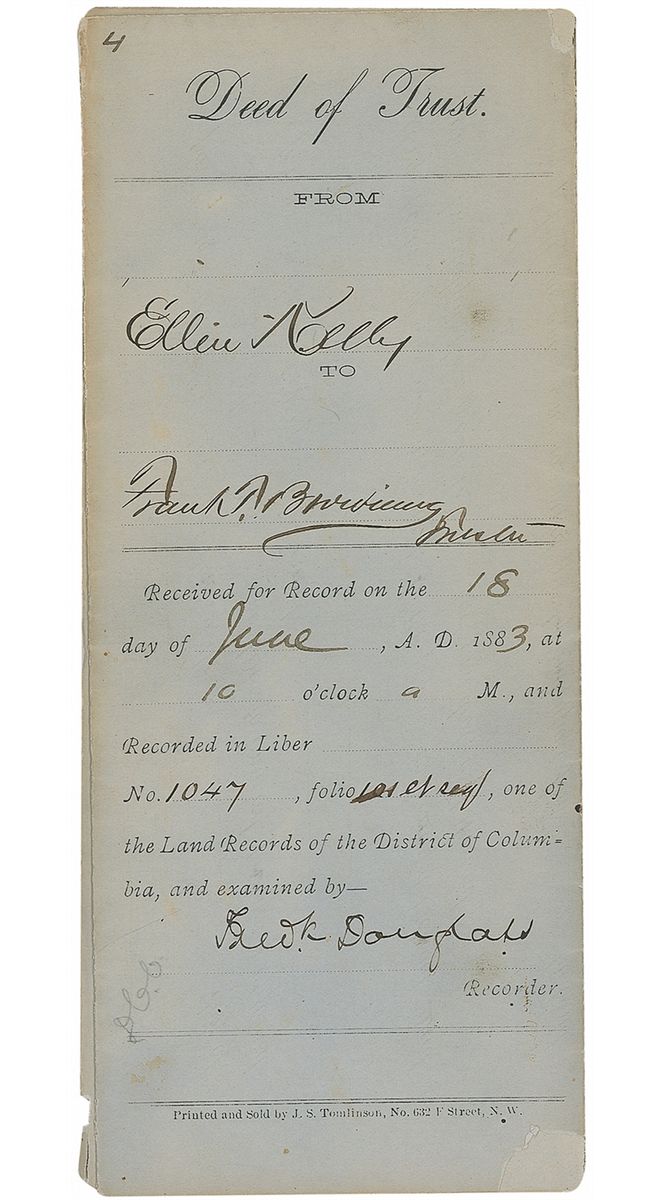 4
Deed of Trust.
FROM
Ellen Kelly
TO
Frank T. Browning
Trustee
Received for Record on the 18
day of June, A. D. 1883, at
10 o'clock a M., and
Recorded in Liber
No. 1047, folio et seq, one of
the Land Records of the District of Colum=
bia, and examined by—
Fredk Douglass
Recorder.
Printed and Sold by J. S. Tomlinson, No. 632 F Street, N. W.